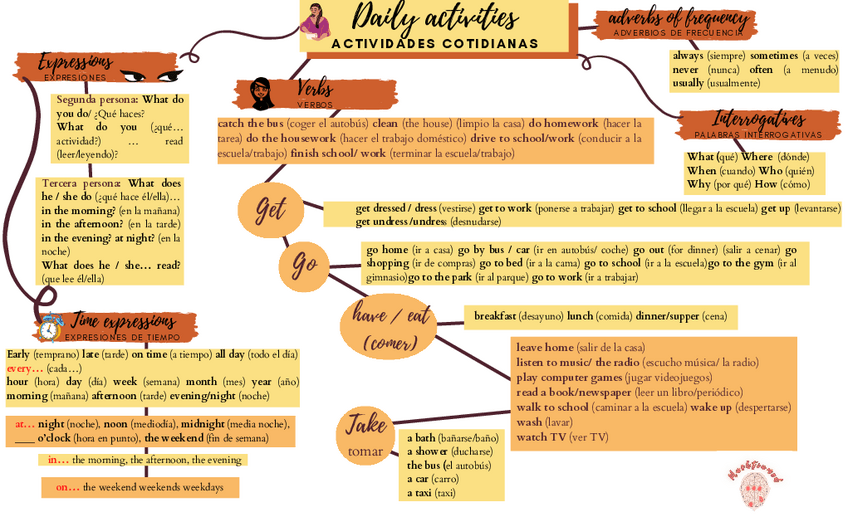 Daily activities
ACTIVIDADES COTIDIANAS
adverbs of frequency
ADVERBIOS DE FRECUENCIA
always (siempre) sometimes (a veces)
never (nunca) often (a menudo)
usually (usualmente)
Expressions
EXPRESIONES
Segunda persona: What do
you do/ ¿Qué haces?
What do you (¿qué...
actividad?) ... read
(leer/leyendo)?
Tercera persona: What does
he / she do (¿qué hace él/ella)...
in the morning? (en la mañana)
in the afternoon? (en la tarde)
in the evening? at night? (en la
noche)
What does he / she... read?
(que lee él/ella)
Verbs
VERBOS
catch the bus (coger el autobús) clean (the house) (limpio la casa) do homework (hacer la
tarea) do the housework (hacer el trabajo doméstico) drive to school/work (conducir a la
escuela/trabajo) finish school/ work (terminar la escuela/trabajo)
Interrogatives
PALABRAS INTERROGATIVAS
What (qué) Where (dónde)
When (cuando) Who (quién)
Why (por qué) How (cómo)
Get
get dressed / dress (vestirse) get to work (ponerse a trabajar) get to school (llegar a la escuela) get up (levantarse)
get undress /undress (desnudarse)
Go
go home (ir a casa) go by bus / car (ir en autobús/ coche) go out (for dinner) (salir a cenar) go
shopping (ir de compras) go to bed (ir a la cama) go to school (ir a la escuela)go to the gym (ir al
gimnasio)go to the park (ir al parque) go to work (ir a trabajar)
have / eat
(comer)
breakfast (desayuno) lunch (comida) dinner/supper (cena)
leave home (salir de la casa)
listen to music/ the radio (escucho música/ la radio)
play computer games (jugar videojuegos)
read a book/newspaper (leer un libro/periódico)
walk to school (caminar a la escuela) wake up (despertarse)
wash (lavar)
watch TV (ver TV)
Take
tomar
a bath (bañarse/baño)
a shower (ducharse)
the bus (el autobús)
a car (carro)
a taxi (taxi)
Time expressions
EXPRESIONES DE TIEMPO
Early (temprano) late (tarde) on time (a tiempo) all day (todo el día)
every... (cada...)
hour (hora) day (día) week (semana) month (mes) year (año)
morning (mañana) afternoon (tarde) evening/night (noche)
at... night (noche), noon (mediodía), midnight (media noche),
____ o'clock (hora en punto), the weekend (fin de semana)
in... the morning, the afternoon, the evening
on... the weekend weekends weekdays